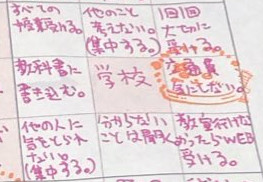 すべての
授業受ける。
他のこと
考えない。
(集中する。)
1回1回
大切に
受ける。
教科書に
書き込む。
学校
交通費
気にしない。
他の人に
気をとられ
ない。
(集中する。)
分からない
ことは聞く
教室行けな
かったらWEB
受ける。